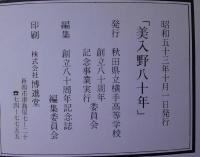 昭和五十三年十月一日発行
「美入野八十年」
発行 秋田県立横手高等学校
創立八十周年
記念事業実行委員会
編集 創立八十周年記念誌
編集委員会
印刷 株式会社 博進堂